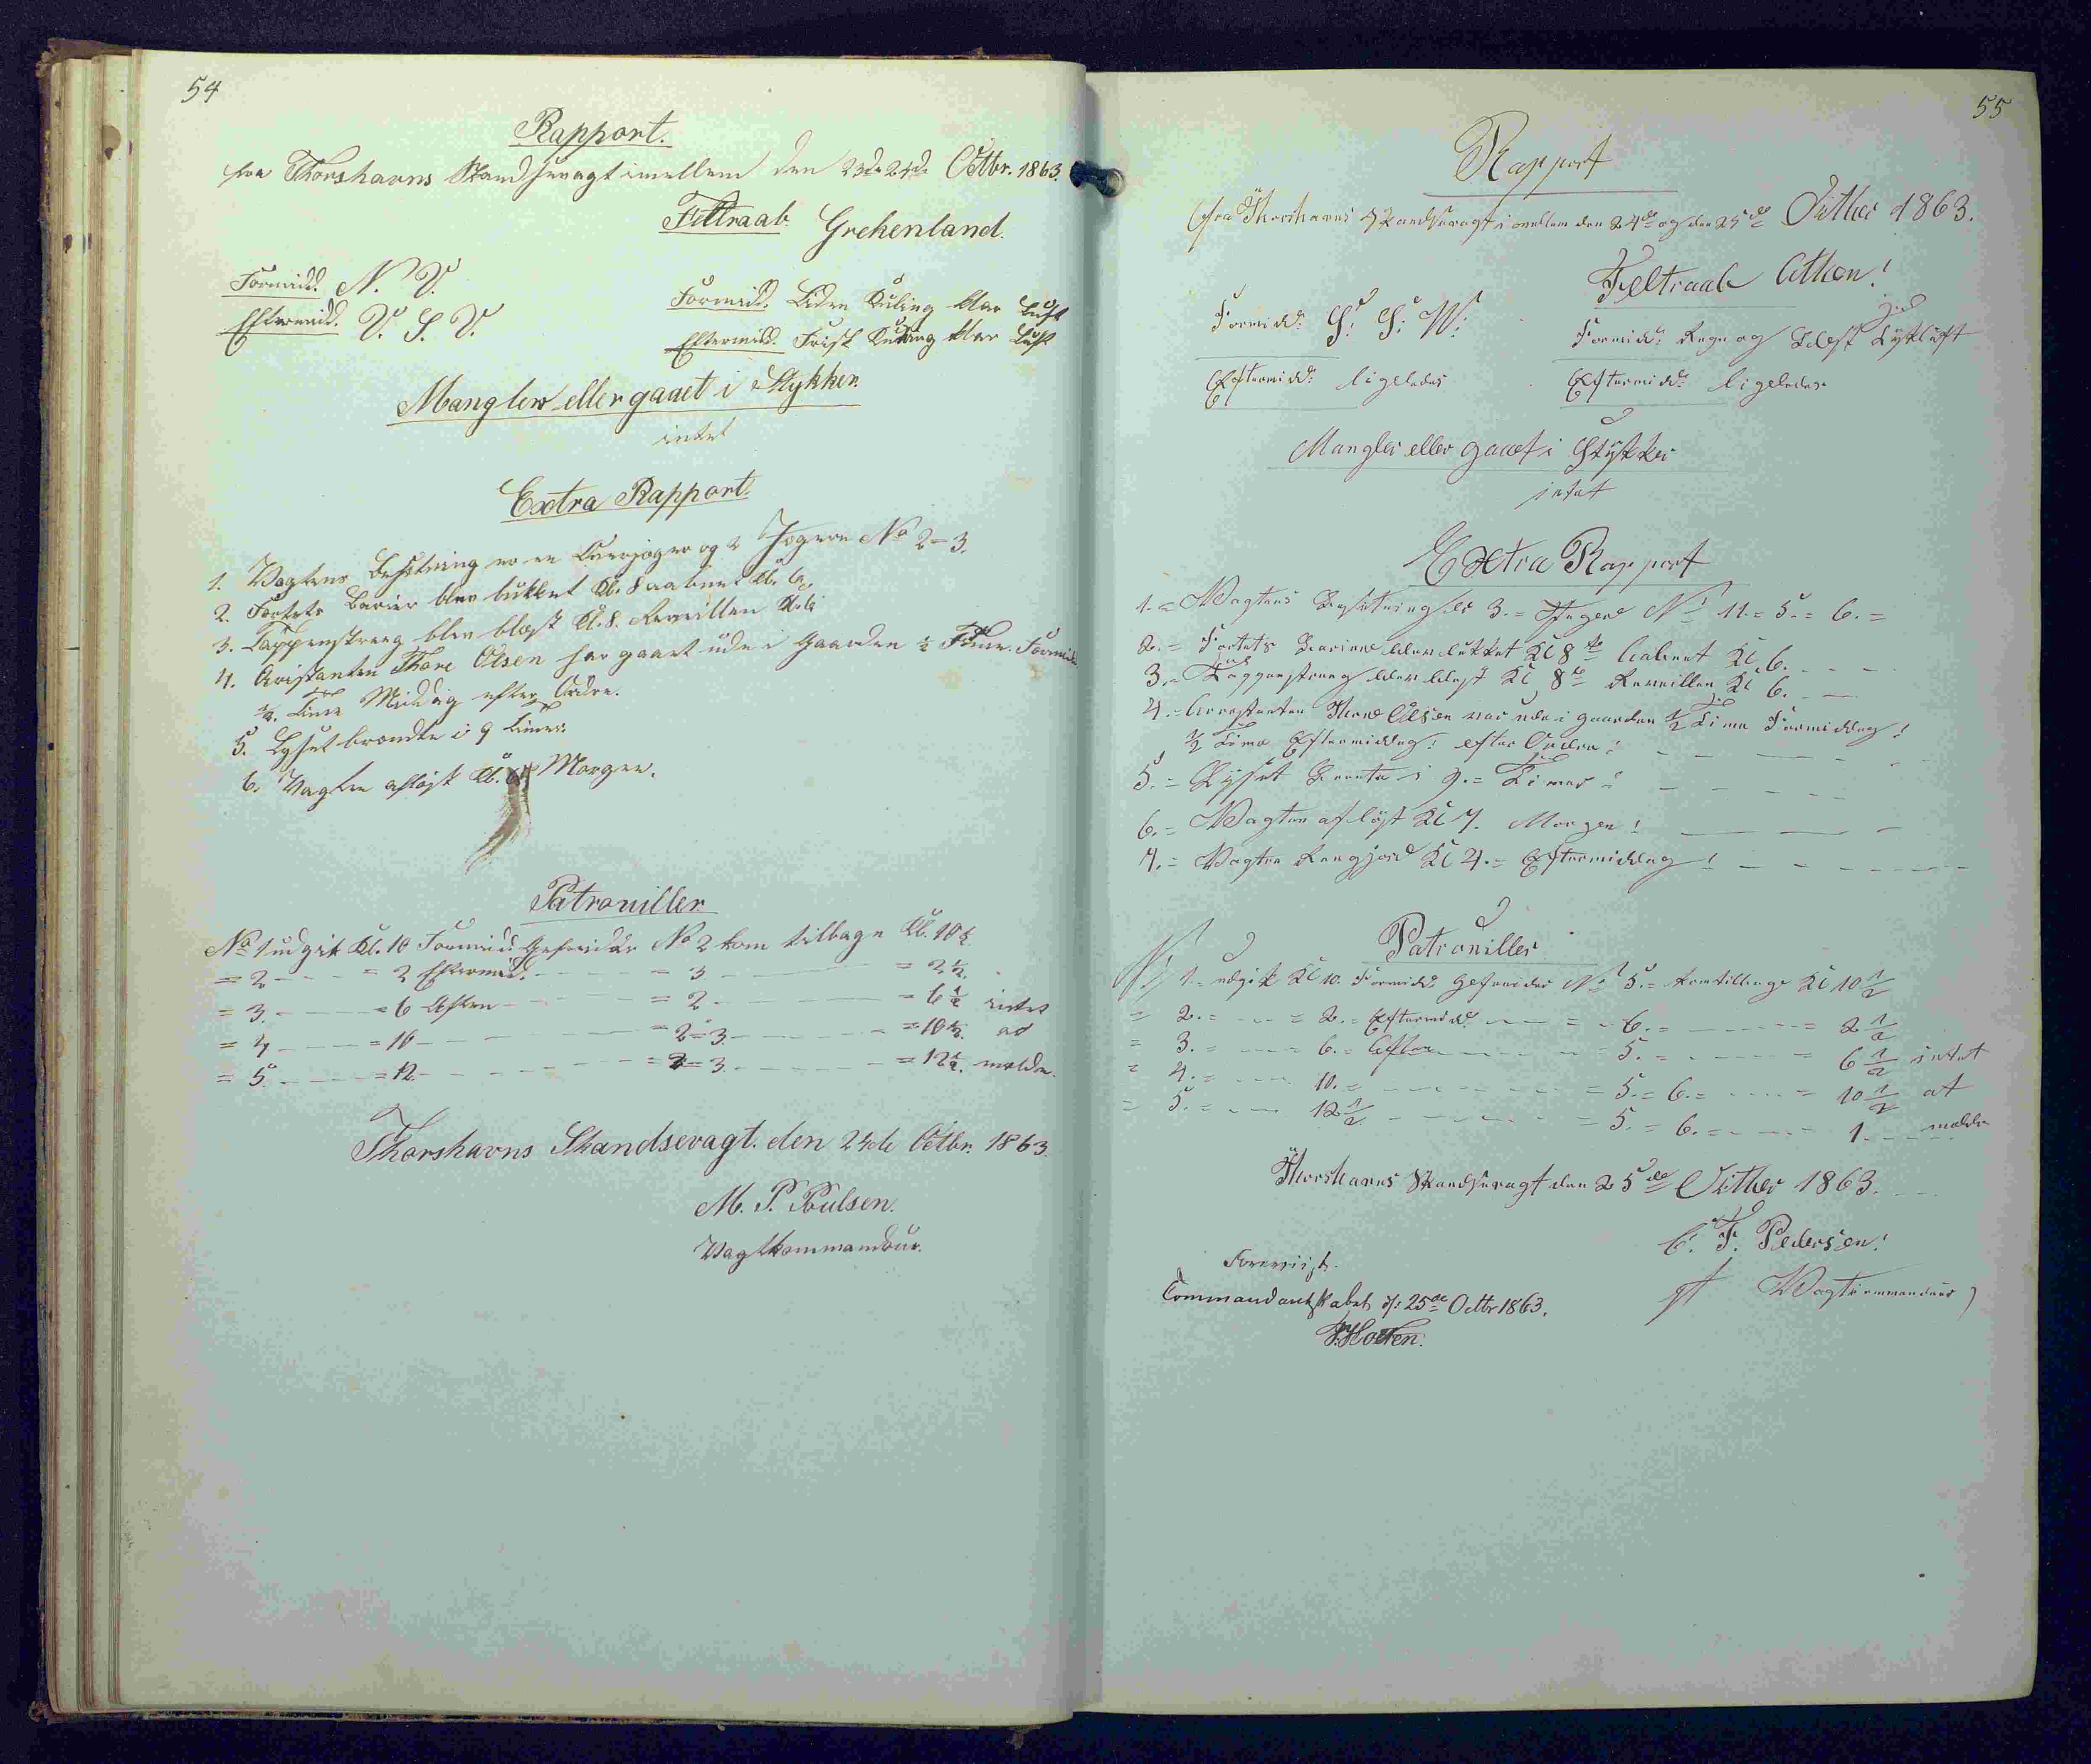 54
Rapport.
fra Thorshavns Skandsevagt imellem den 23de 24de Octbr. 1863.
Feltraab. Grekenland.
Formidd. N. V.
Eftermidd. V. S. V.
Formidd. Liden Kuling klar Luft
Eftermidd. Frisk Kuling klar Luft
Mangler eller gaaet i Stykker
intet
Extra Rapport.
1. Vagtens Besætning er en Overjæger og 2 Jægere No 2=3.
2. Fortets Barier blev lukket Kl. 8 aabnet Kl. 6.
3. Tappenstreeg blev blæst Kl. 8. Reveillen Kl. 6
4. Aristanten Thore Olsen har gaaet ude i Gaarden ½ Time. Formidd.
½. Time Middag efter Ordre.
5. Lyset brændte i 9 Timer.
6. Vagten afløst Kl. Morgen.
Patrouiller
No 1 udgik Kl. 10 Formidd Gefreider No 2 kom tilbage Kl. 10½.
= 2 - - - = 2 Eftermidd. - - - = 3 - - - = 2½.
= 3. - - - = 6 Aften - - - = 2 - - - = 6½ intet
= 4 - - - = 10 - - - = 2=3 - - - = 10½. at
= 5. - - - = 12. - - - = 2=3. - - - = 12½. melde.
Thorshavns Skandsevagt. den 24de Octbr. 1863.
M. P. Poulsen.
Vagtkommandeur.
55
Rapport
fra Thorshavns Skandsevagt imellem den 24de og den 25de Octber 1863.
Feltraab Athen!
Formidd: S: S: W:
Formidd: Regn og Blæst Tÿkluft
Eftermidd: ligeledes
Eftermidd: ligeledes
Mangler eller gaaet i Stÿkker
intet
Extra Rapport
1. = Wagtens Besætning er 3. = Jæger No 11. = 5. = 6. =
2. = Fortets Bariere blev lukket Kl 8te Aabnet Kl 6. - - -
3. = Tappenstreeg blev blæst Kl 8te Reveillen Kl 6. - -
4. = Arrestanten Thore Olsen var ude i gaarden ½ Time Formiddag!
½ Time Eftermiddag! efter Ordre! - - -
5. = Lÿset Brænte i 9. = Timer! - - -
6. = Wagten afløst Kl 7. Morgen! - - -
7. = Vagten Rengjord Kl 4. = Eftermiddag! - - -
Patrouiller
No 1. = udgik Kl 10. Formidd: Gefreider No 5. = kom tilbage Kl 10½
= 2. = - - - = 2. = Eftermidd: - - - = 6. = - - - = 2½
= 3. = - - - = 6. = Aften - - - 5. = - - - = 6½ intet
= 4. = - - - 10. = - - - = 5. = 6. = - - - = 10½ at
= 5. = - - - 12½ - - - = 5. = 6. = - - - 1. - - melde
Thorshavns Skandsevagt den 25de Octber 1863.
C. F. Pedersen!
Wagtcommandeur
Foreviist.
Commandantskabet d: 25de Octbr 1863.